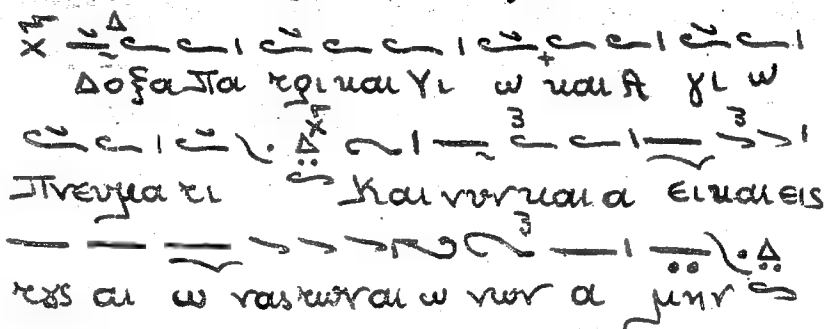 Δοξα Πα τρι και Υι ω και Α γι ω
Πνευμα τι Και νυν και α ει και εις
τȣς αι ω νας των αι ω νων α μην